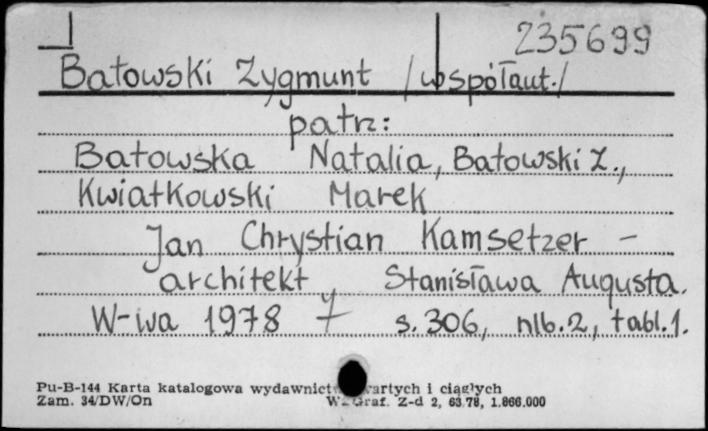 235699
Batowski Zygmunt /współaut./
patrz:
Batowska Natalia, Batowski Z.,
Kwiatkowski Marek
Jan Chrystian Kamsetzer -
architekt Stanisława Augusta.
W-wa 1978 s. 306, nlb. 2, tabl. 1.
Pu-B-144 Karta katalogowa wydawnictw zwartych i ciągłych
Zam. 34/DW/On Graf. Z-d 2, 63.78, 1.866.000